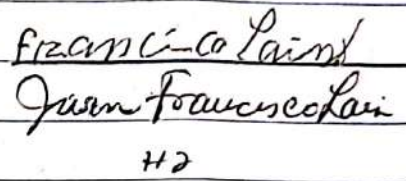 Francisco Lainz
Juan Francisco Lain
H2